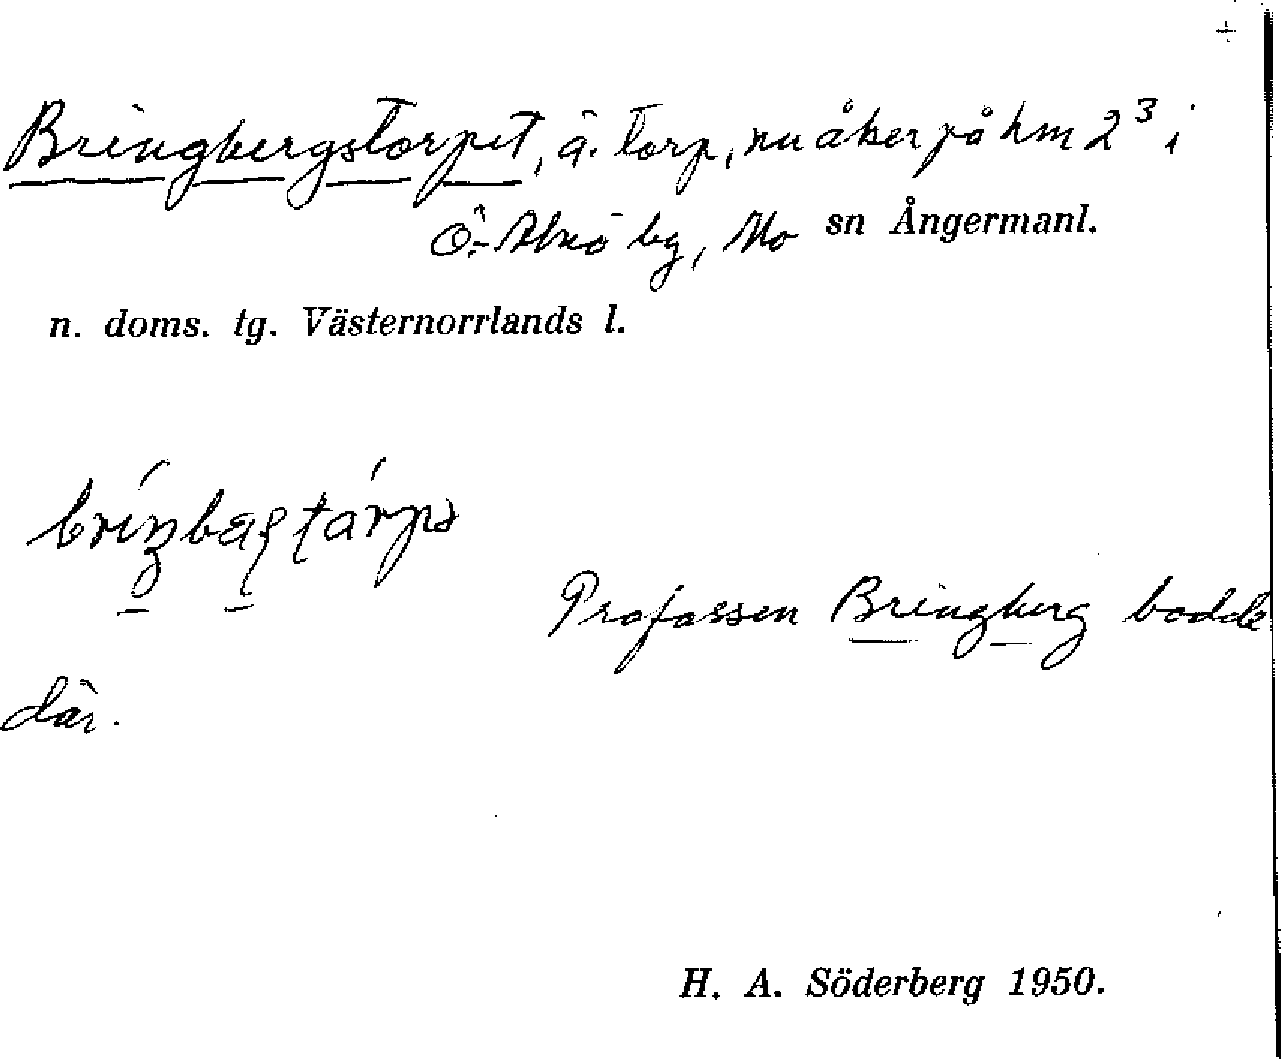 ÷
Bringbergstorpet, ä. torp, nu åker på hm 2³ i
Ö. Alnö by, Mo sn Ångermanl.
n. doms. tg. Västernorrlands l.
Profossen Bringberg bodde
där.
H. A. Söderberg 1950.